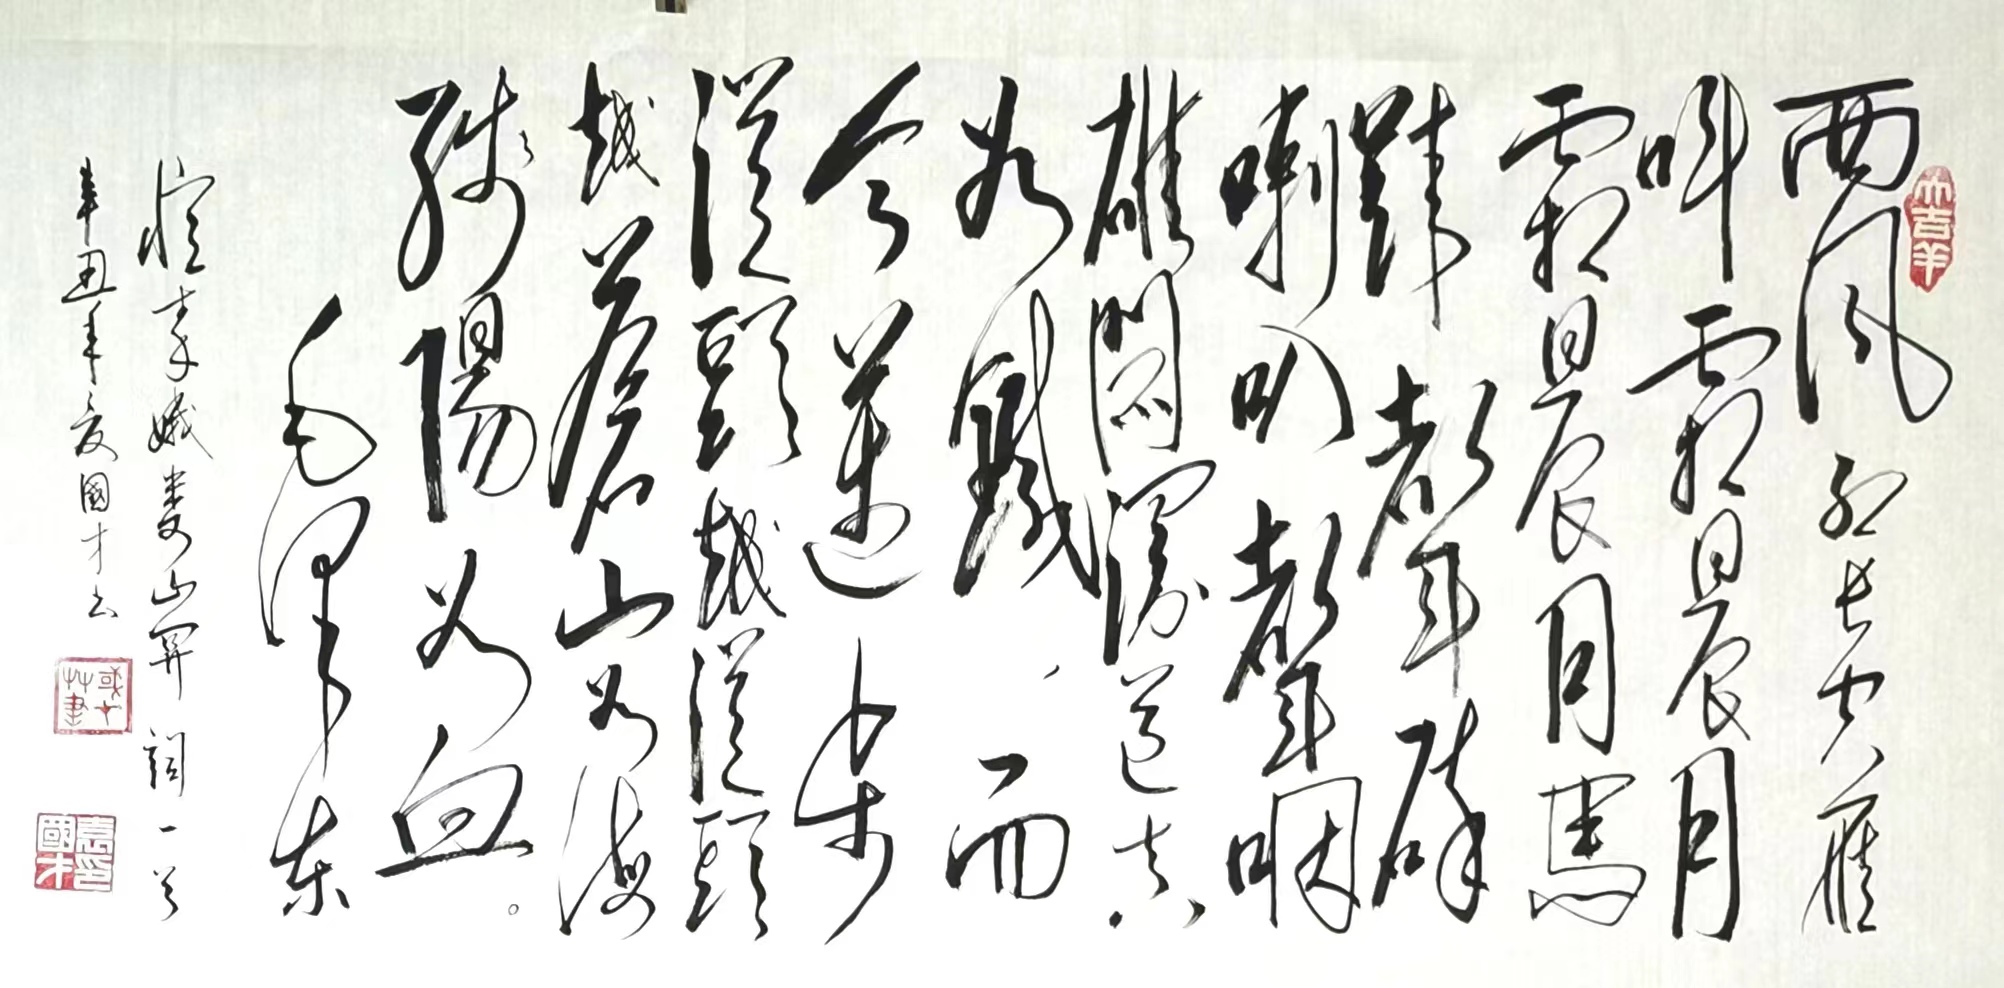 大吉羊
西风烈長空雁
叫霜晨月
霜晨月馬
蹄聲碎
喇叭聲咽
雄關漫道真
如鐵、而
今邁步
從頭越從頭
越蒼山如海
殘陽如血。
毛澤東
憶秦娥娄山関詞一首
辛丑年夏國才书
國才艸書
袁印國才